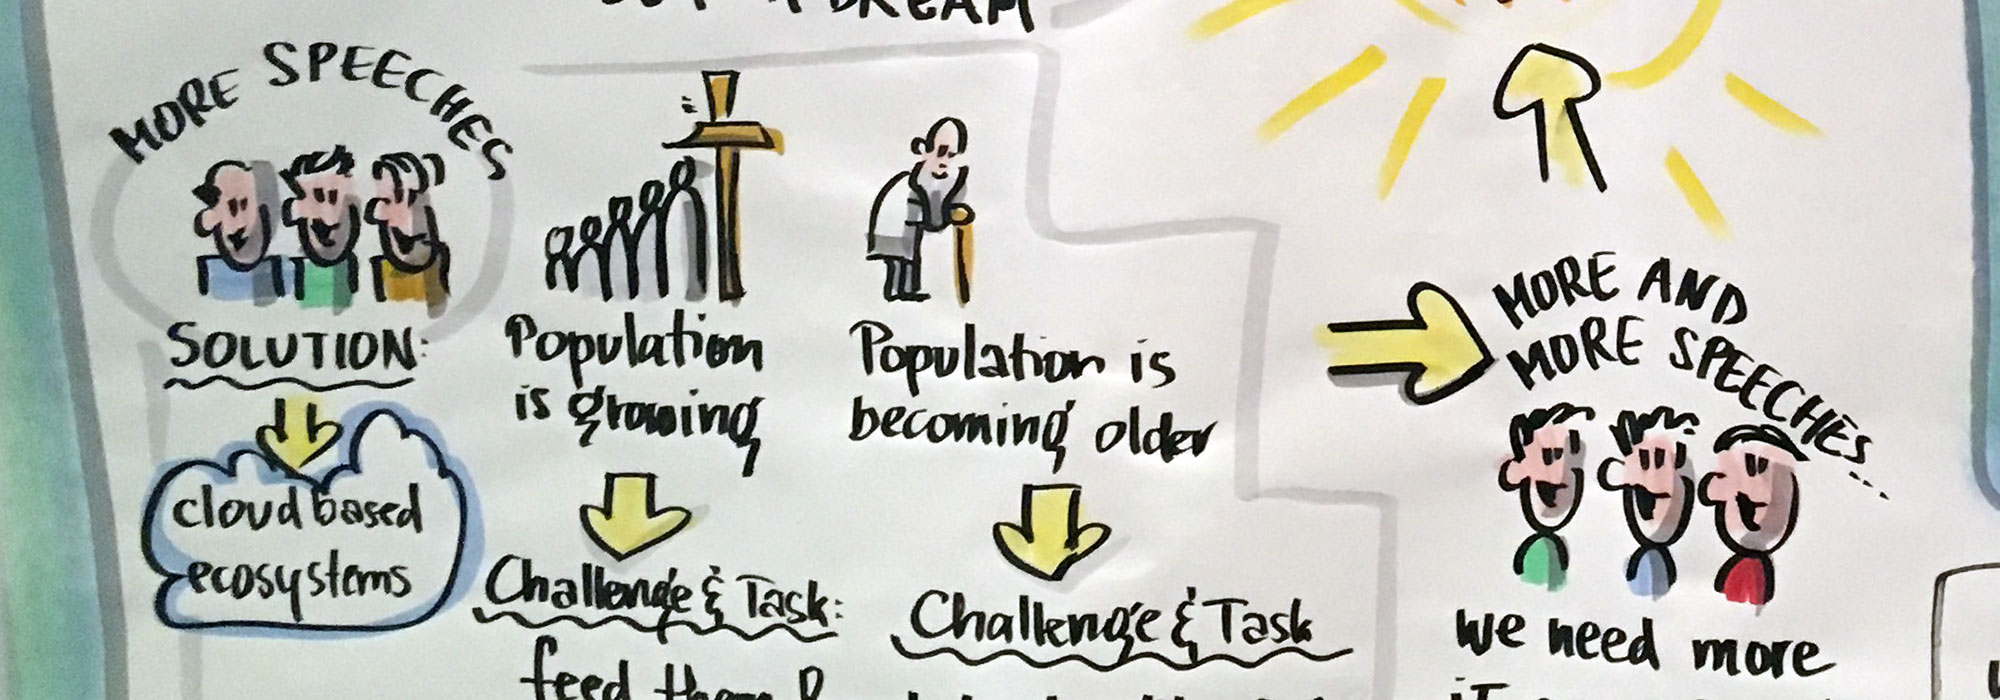 DREAM
MORE SPEECHES
SOLUTION:
cloud based
ecosystems
Population
is growing
Challenge & Task:
feed them
Population is
becoming older
Challenge & Task
MORE AND
MORE SPEECHES...
we need more